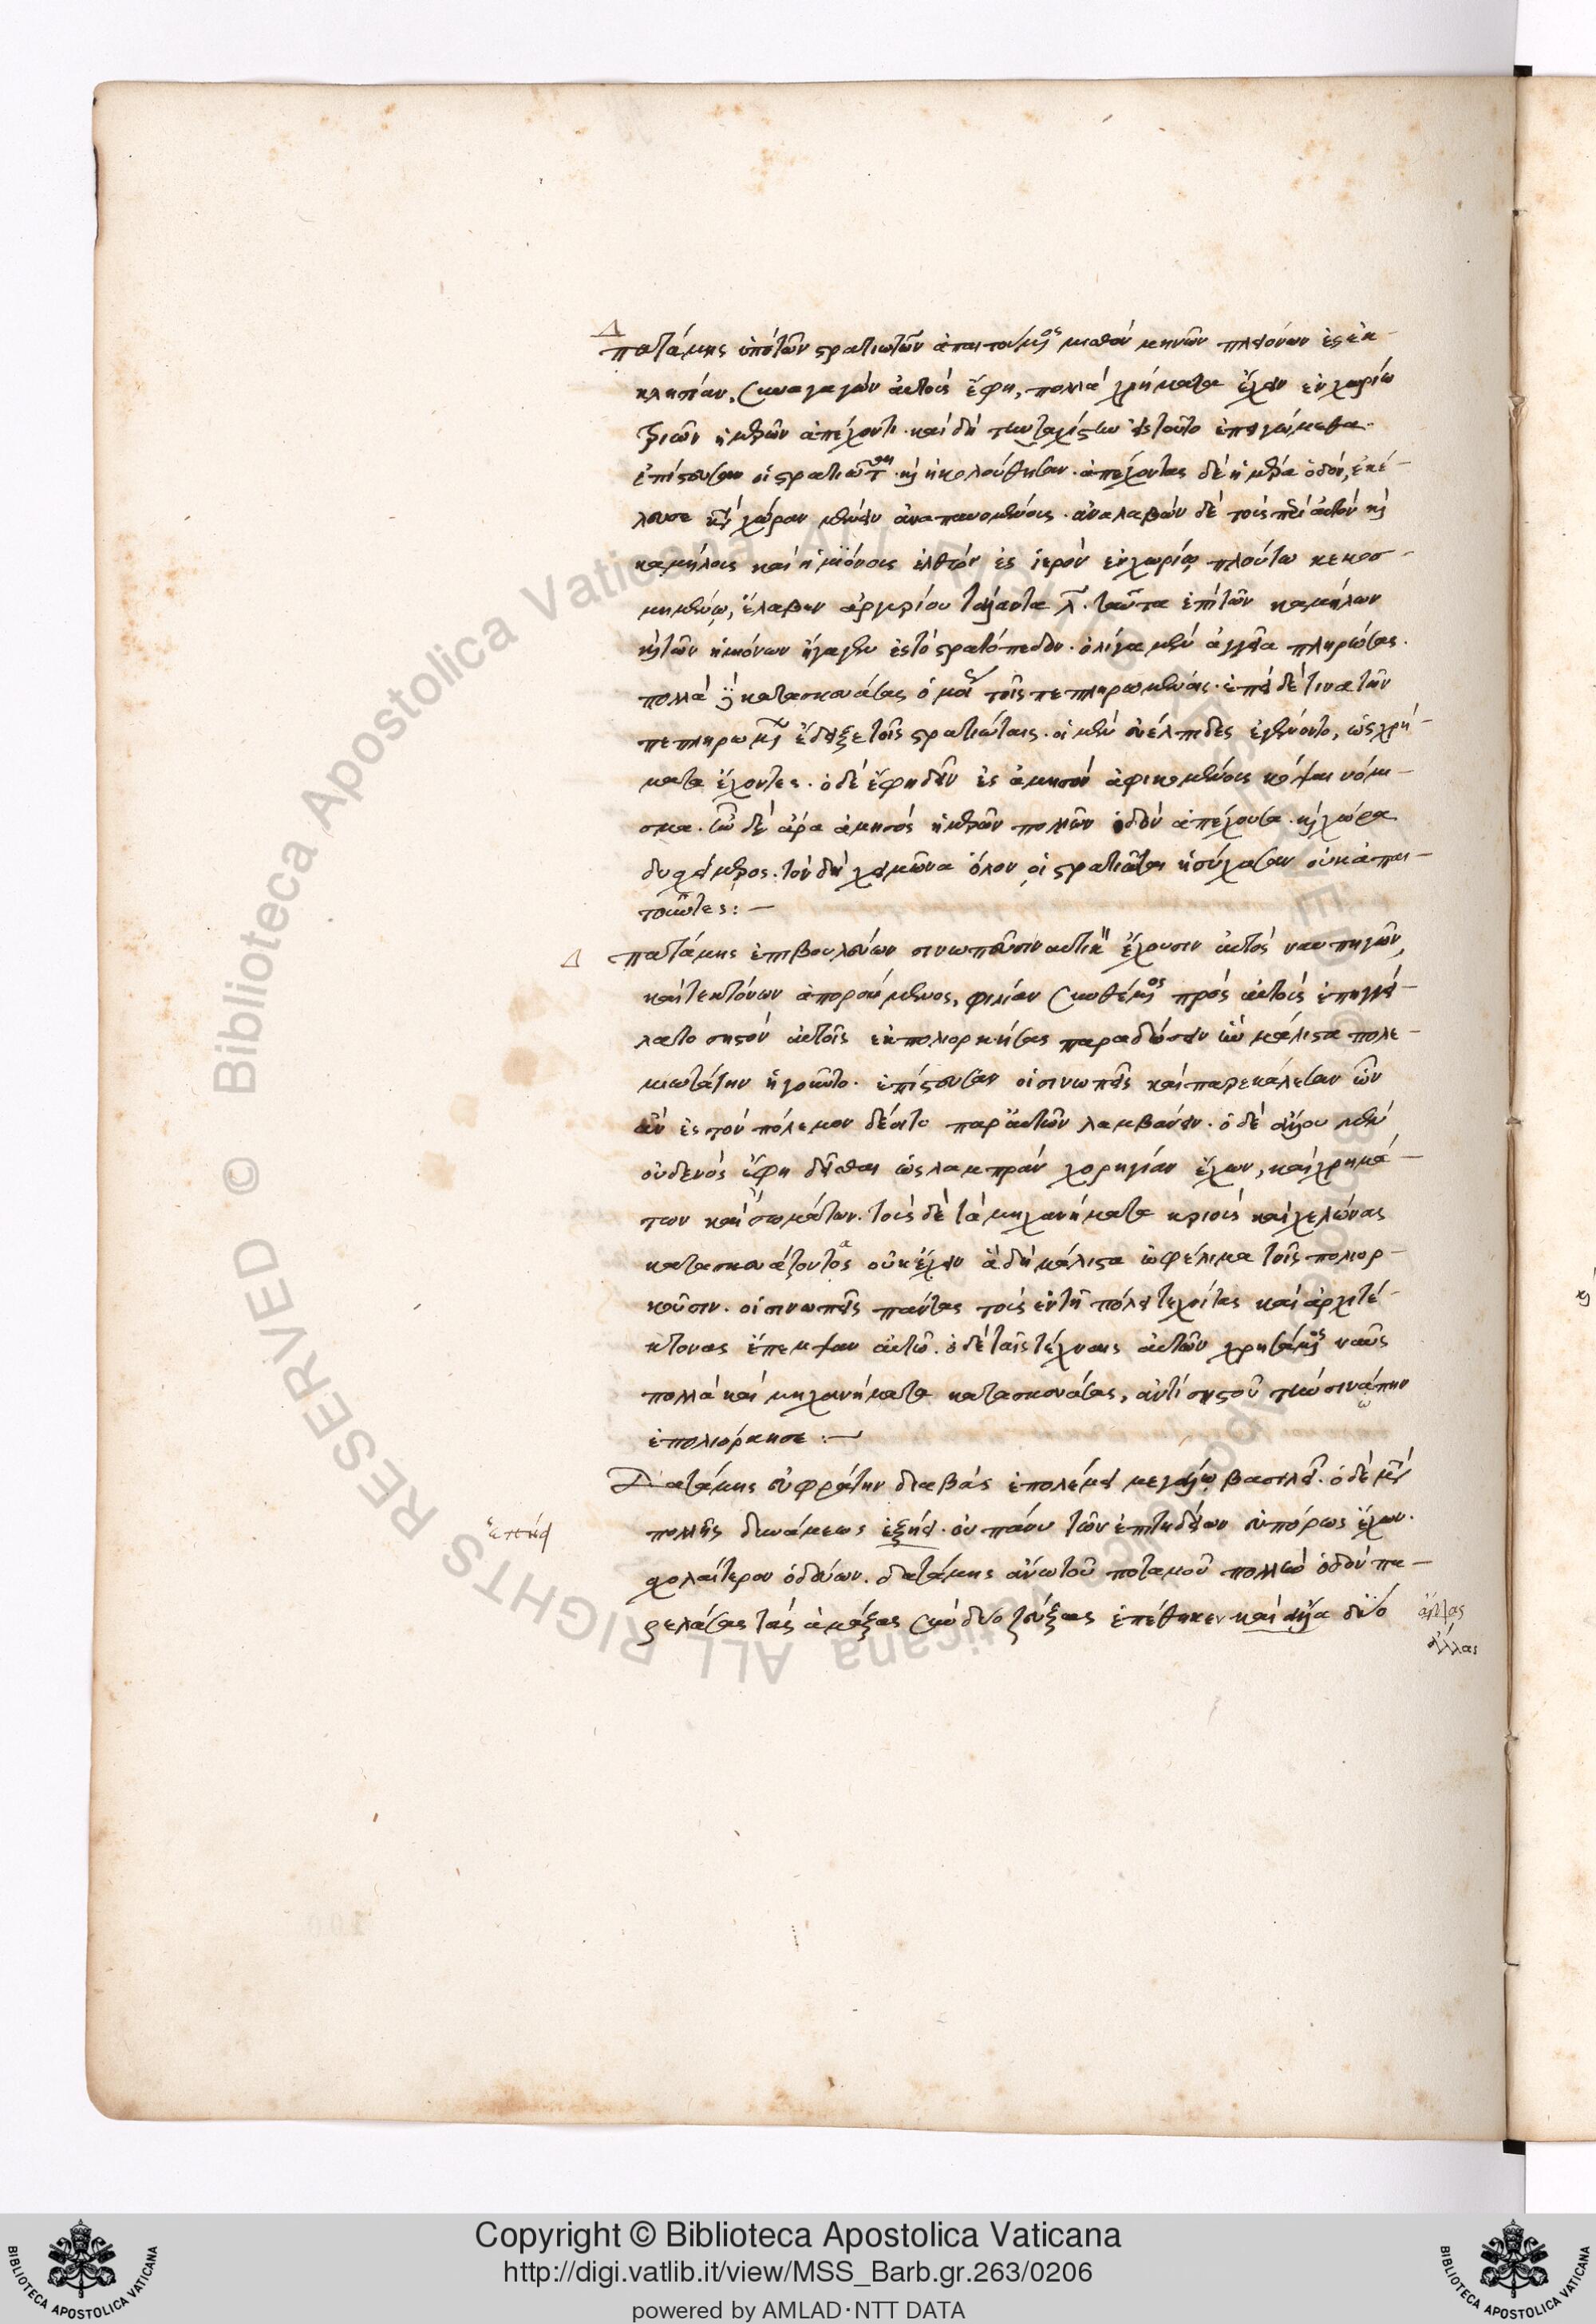 Δ
πατάμης ὑπὸ τῶν στρατιωτῶν ἀπαιτούμενος μισθὸν μηνῶν πλειόνων ἐς ἐκ-
κλησίαν, συναγαγὼν αὐτοὺς ἔφη, πολλὰ χρήματα ἔχειν ἐν χωρίῳ
τριῶν ἡμερῶν ἀπέχοντι. καὶ δὴ τὴν ταχίστην ἐς τοῦτο ἐπειγώμεθα.
ἐπίστευσαν οἱ στρατιῶται. καὶ ἠκολούθησαν. ἀπέχοντας δὲ ἡμέρα ὁδόν, ἐκέ-
λευσε κατὰ χώραν μένειν ἀναπαυομένους. ἀναλαβὼν δὲ τοὺς περὶ αὐτὸν καὶ
καμήλους καὶ ἡμιόνους ἐλθὼν ἐς ἱερὸν ἐγχωρίῳ πλούτῳ κεκοσ-
μημένῳ, ἔλαβεν ἀργυρίου τάλαντα λ. ταῦτα ἐπὶ τῶν καμήλων
καὶ τῶν ἡμιόνων ἤγαγεν ἐς τὸ στρατόπεδον. ὀλίγα μὲν ἀγγεῖα πληρώσας.
πολλὰ δὲ κατασκευάσας ὅμοια τοῖς πεπληρωμένοις. ἐπεὶ δέ τινα τῶν
πεπληρωμένων ἔδειξε τοῖς στρατιώταις. οἱ μὲν εὐέλπιδες ἐγένοντο, ὡς χρή-
ματα ἔχοντες. ὁ δὲ ἔφη δεῖν ἐς ἀμισὸν ἀφικομένους κόψαι νόμι-
σμα. ἦν δὲ ἄρα ἀμισὸς ἡμερῶν πολλῶν ὁδὸν ἀπέχουσα. καὶ χώρα
δυσχείμερος. τὸν δὴ χειμῶνα ὅλον οἱ στρατιῶται ἡσύχασαν οὐκ ἀπαι-
τοῦντες: —
Δ πατάμης ἐπιβουλεύων σινωπεῦσιν αὐτίκα ἔχουσιν αὐτὸς ναυπηγῶν,
καὶ τεκτόνων ἀπορούμενος, φιλίαν συνθέμενος πρὸς αὐτοὺς ἐπηγγεί-
λατο σηστὸν αὐτοῖς ἐκπολιορκήσας παραδώσειν ἣν μάλιστα πολε-
μιωτάτην ἡγοῦντο. ἐπίστευσαν οἱ σινωπεῖς καὶ παρεκάλεσαν ὧν
ἂν ἐς τὸν πόλεμον δέοιτο παρ' αὐτῶν λαμβάνειν. ὁ δὲ ἄλλου μὲν
οὐδενὸς ἔφη δεῖσθαι ὡς λαμπρὰν χορηγίαν ἔχων, καὶ χρημά-
των καὶ σωμάτων. τοὺς δὲ τὰ μηχανήματα κριοὺς καὶ χελώνας
κατασκευάζοντας οὐκ ἔχειν ἃ δὴ μάλιστα ὠφέλιμα τοῖς πολιορ-
κοῦσιν. οἱ σινωπεῖς πάντας τοὺς ἐν τῇ πόλει τεχνίτας καὶ ἀρχιτέ-
κτονας ἔπεμψαν αὐτῷ. ὁ δὲ ταῖς τέχναις αὐτῶν χρησάμενος ναῦς
πολλὰ καὶ μηχανήματα κατασκευάσας, ἀντὶ σηστοῦ τὴν σινώπην
ἐπολιόρκησε: —
Δατάμης εὐφράτην διαβὰς ἐπολέμει μεγάλῳ βασιλεῖ. ὁ δὲ μετὰ
πολλῆς δυνάμεως ἐξῄει. οὐ πάνυ τῶν ἐπιτηδείων εὐπόρως ἔχων.
ἐπῄει
σχολαίτερον ὁδεύων. δατάμης ἄνω τοῦ ποταμοῦ πολλὴν ὁδὸν πα-
ρελάσας τὰς ἁμάξας σὺν δύο ζεύξας ἐπέθηκεν καὶ ἄλλα δύο
ἄλλας
ἄλλας
Copyright © Biblioteca Apostolica Vaticana
http://digi.vatlib.it/view/MSS_Barb.gr.263/0206
powered by AMLAD·NTT DATA